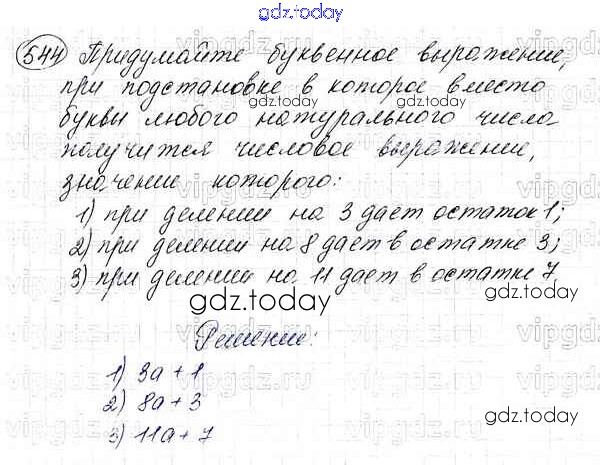 gdz.today
544 Придумайте буквенное выражение,
при подстановке в которое вместо
gdz.today
буквы любого натурального числа
получится числовое выражение,
значение которого:
1) при делении на 3 дает остаток 1;
2) при делении на 8 дает в остатке 3;
3) при делении на 11 дает в остатке 7
gdz.today
gdz.today
Решение:
1) 3а + 1
2) 8а + 3
gdz.today
3) 11а + 7